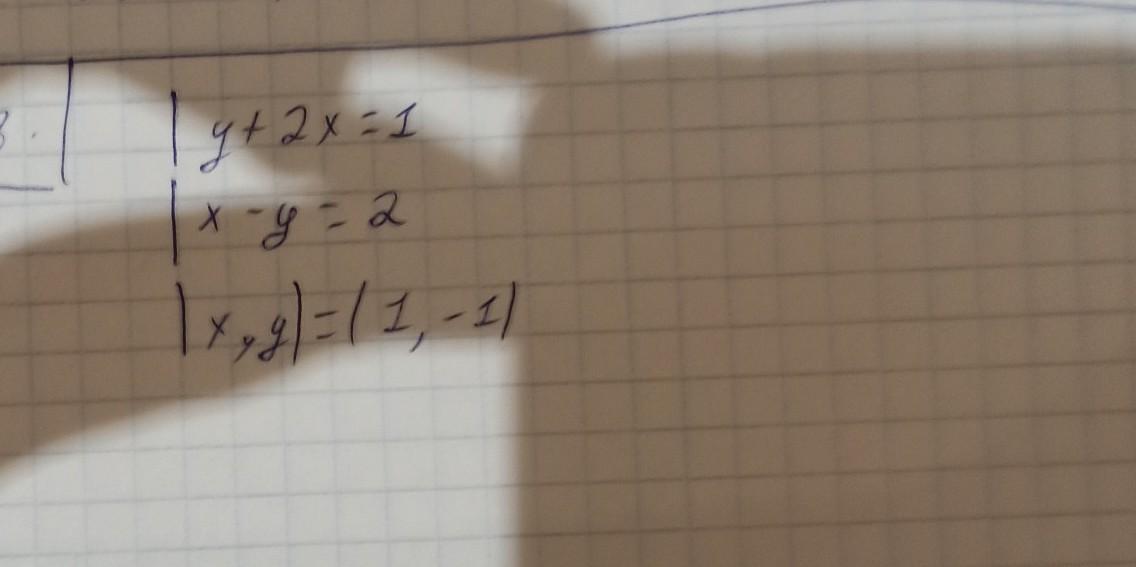 3.
| y + 2x = 1
| x - y = 2
|x, y| = (1, -1)